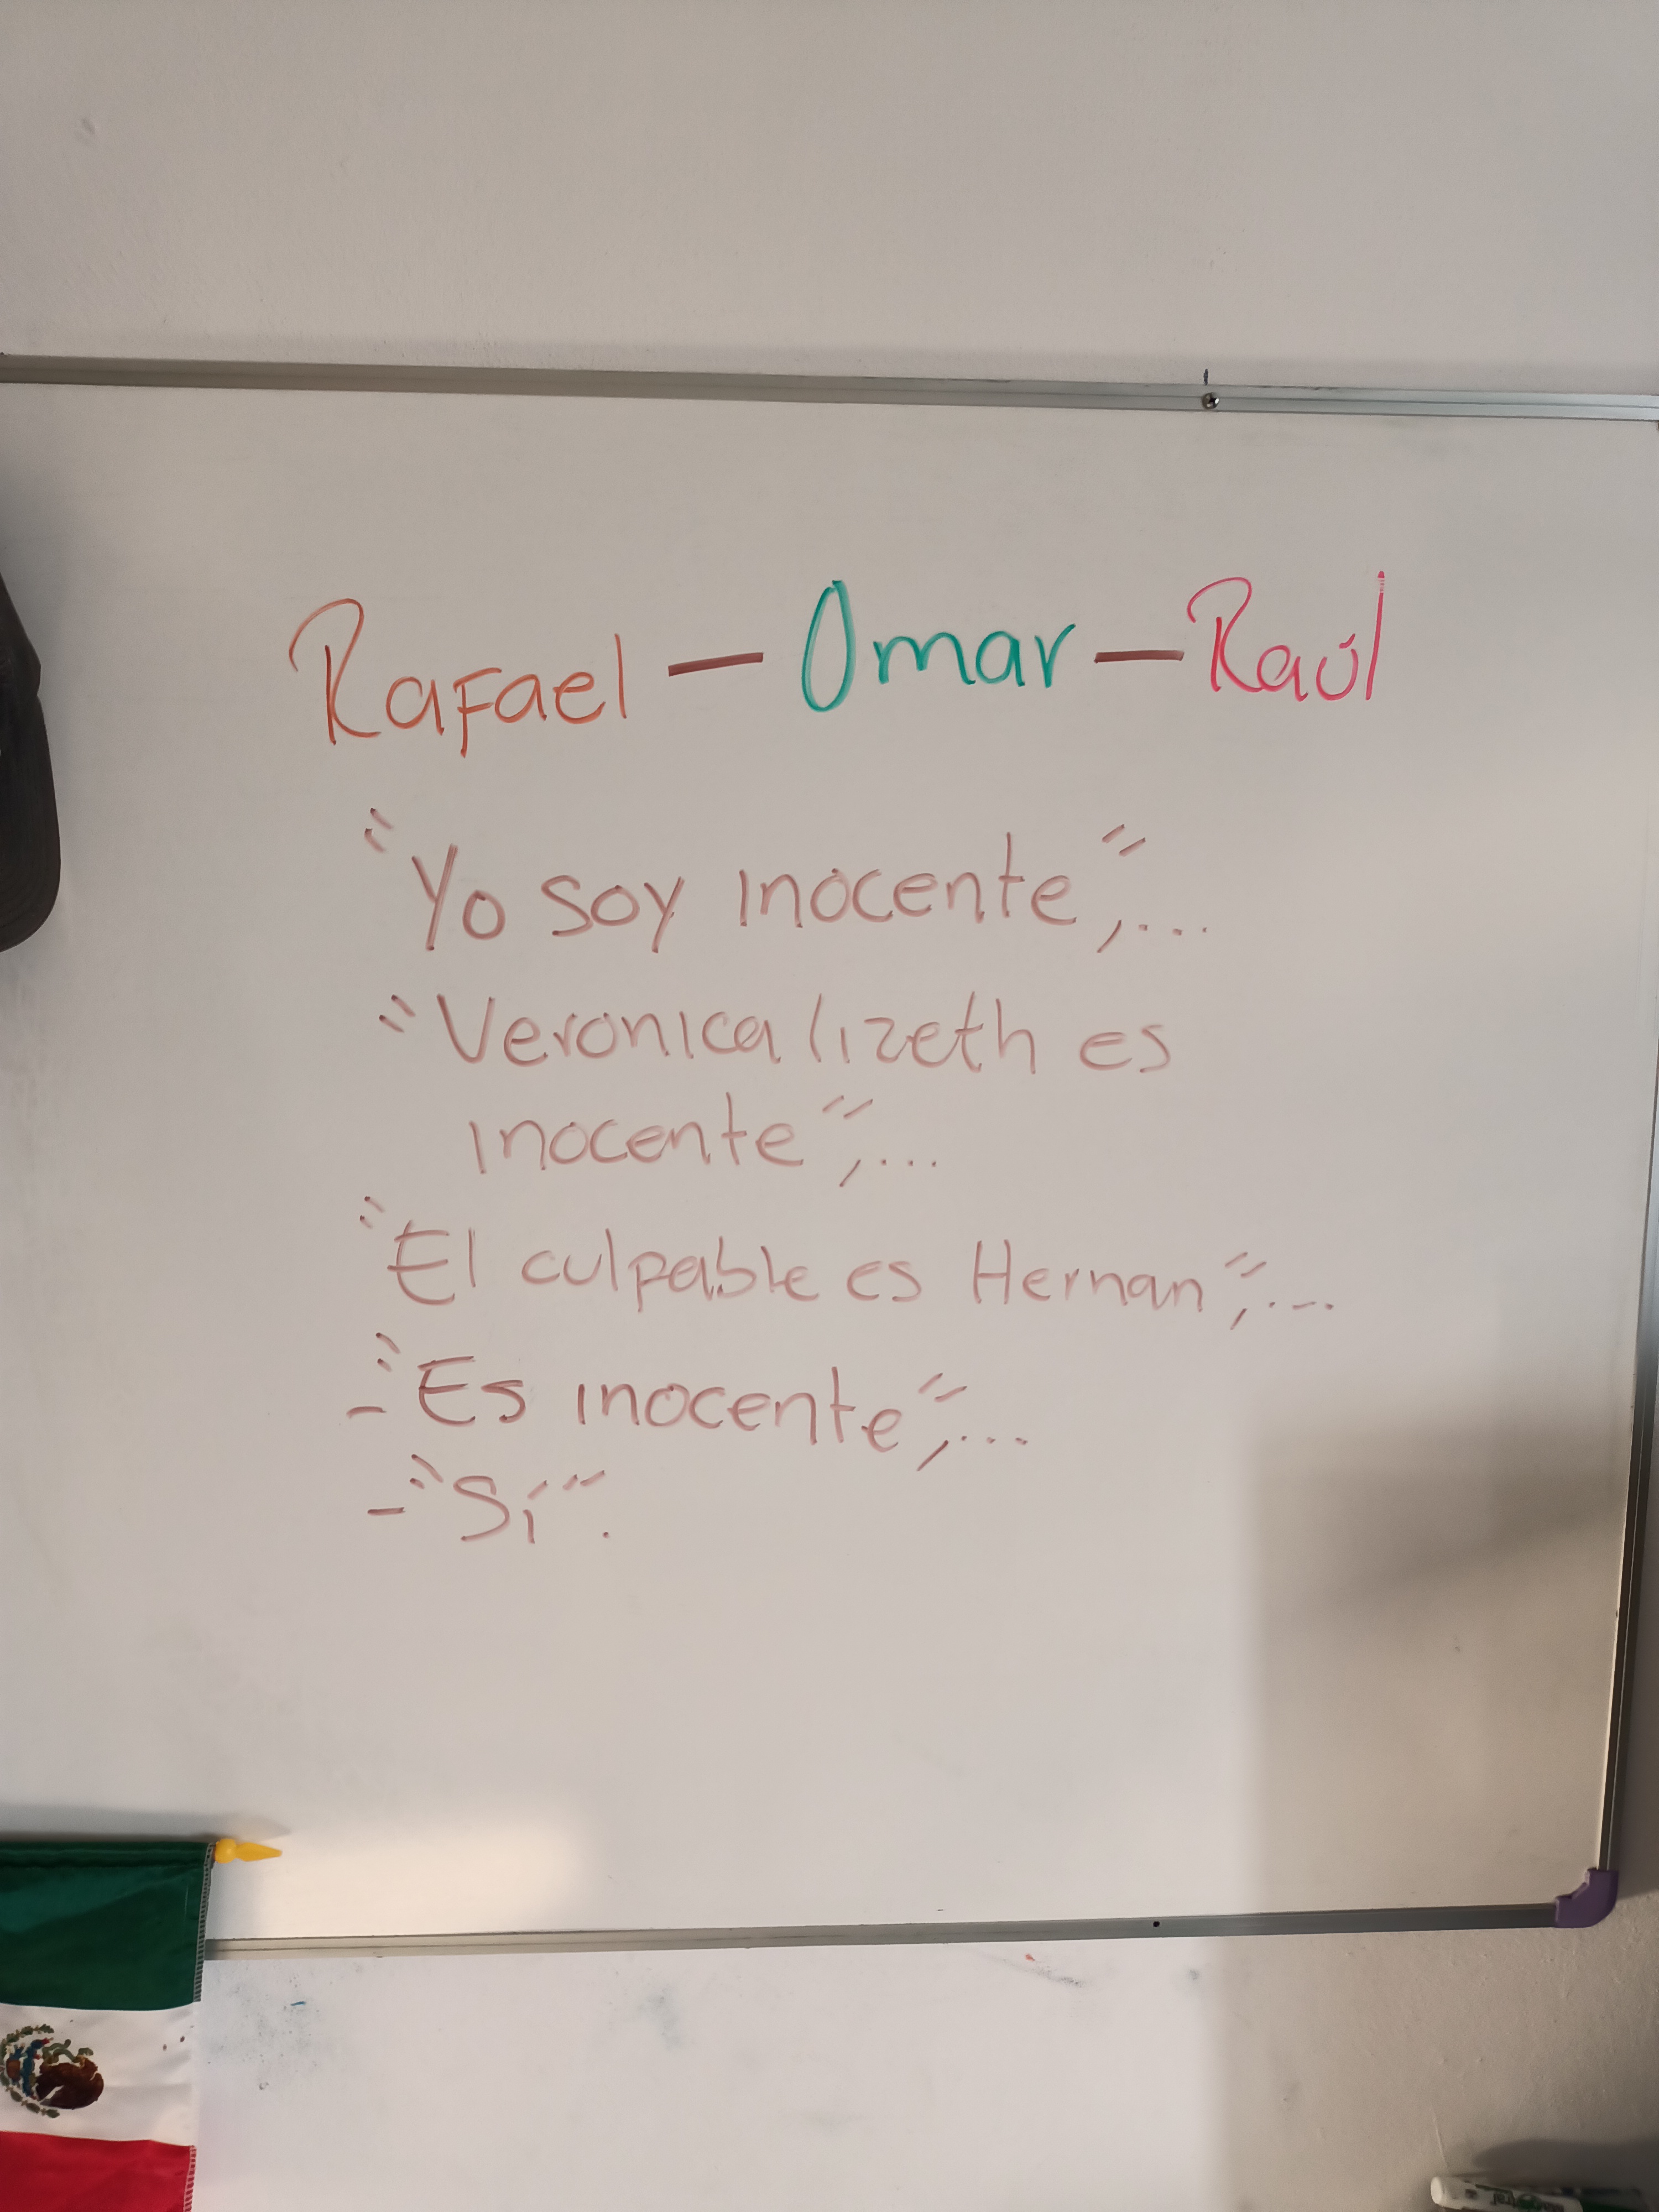 Rafael — Omar — Raúl
"Yo soy inocente",...
"Veronica lizeth es
inocente",...
"El culpable es Hernan",...
- "Es inocente",...
- "Sí".